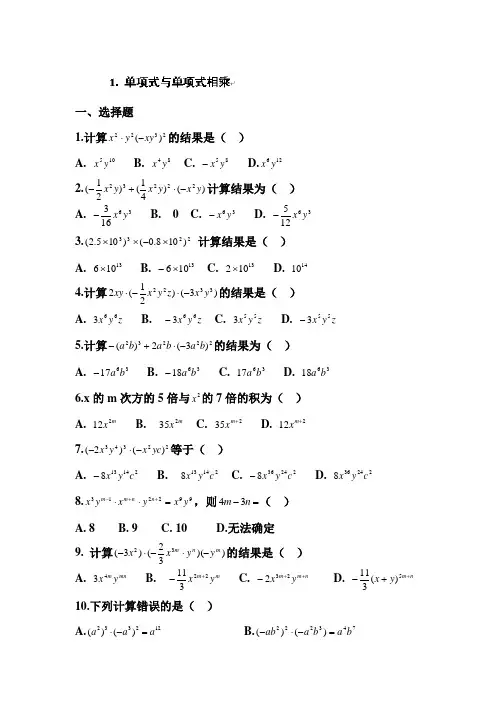 1. 单项式与单项式相乘
一、选择题
1.计算 $x^2 \cdot y^2(-xy^3)^2$ 的结果是（ ）
A. $x^5y^{10}$ B. $x^4y^8$ C. $-x^5y^8$ D. $x^6y^{12}$
2. $(-\frac{1}{2}x^2y)^3+(\frac{1}{4}x^2y)^2\cdot(-x^2y)$ 计算结果为（ ）
A. $-\frac{3}{16}x^6y^3$ B. 0 C. $-x^6y^3$ D. $-\frac{5}{12}x^6y^3$
3. $(2.5\times10^3)^3\times(-0.8\times10^2)^2$ 计算结果是（ ）
A. $6\times10^{13}$ B. $-6\times10^{13}$ C. $2\times10^{13}$ D. $10^{14}$
4.计算 $2xy\cdot(-\frac{1}{2}x^2y^2z)\cdot(-3x^3y^3)$ 的结果是（ ）
A. $3x^6y^6z$ B. $-3x^6y^6z$ C. $3x^5y^5z$ D. $-3x^5y^5z$
5.计算 $-(a^2b)^3+2a^2b\cdot(-3a^2b)^2$ 的结果为（ ）
A. $-17a^6b^3$ B. $-18a^6b^3$ C. $17a^6b^3$ D. $18a^6b^3$
6.x 的 m 次方的 5 倍与 $x^2$ 的 7 倍的积为（ ）
A. $12x^{2m}$ B. $35x^{2m}$ C. $35x^{m+2}$ D. $12x^{m+2}$
7. $(-2x^3y^4)^3\cdot(-x^2yc)^2$ 等于（ ）
A. $-8x^{13}y^{14}c^2$ B. $8x^{13}y^{14}c^2$ C. $-8x^{36}y^{24}c^2$ D. $8x^{36}y^{24}c^2$
8. $x^3y^{m-1}\cdot x^{m+n}\cdot y^{2n+2}=x^9y^9$，则 $4m-3n=$（ ）
A. 8 B. 9 C. 10 D.无法确定
9. 计算 $(-3x^2)\cdot(-\frac{2}{3}x^{3m}\cdot y^n)(-y^m)$ 的结果是（ ）
A. $3x^{4m}y^{mn}$ B. $-\frac{11}{3}x^{2m+2}y^m$ C. $-2x^{3m+2}y^{m+n}$ D. $-\frac{11}{3}(x+y)^{5m+n}$
10.下列计算错误的是（ ）
A. $(a^2)^3\cdot(-a^3)^2=a^{12}$ B. $(-ab^2)^2\cdot(-a^2b^3)=a^4b^7$